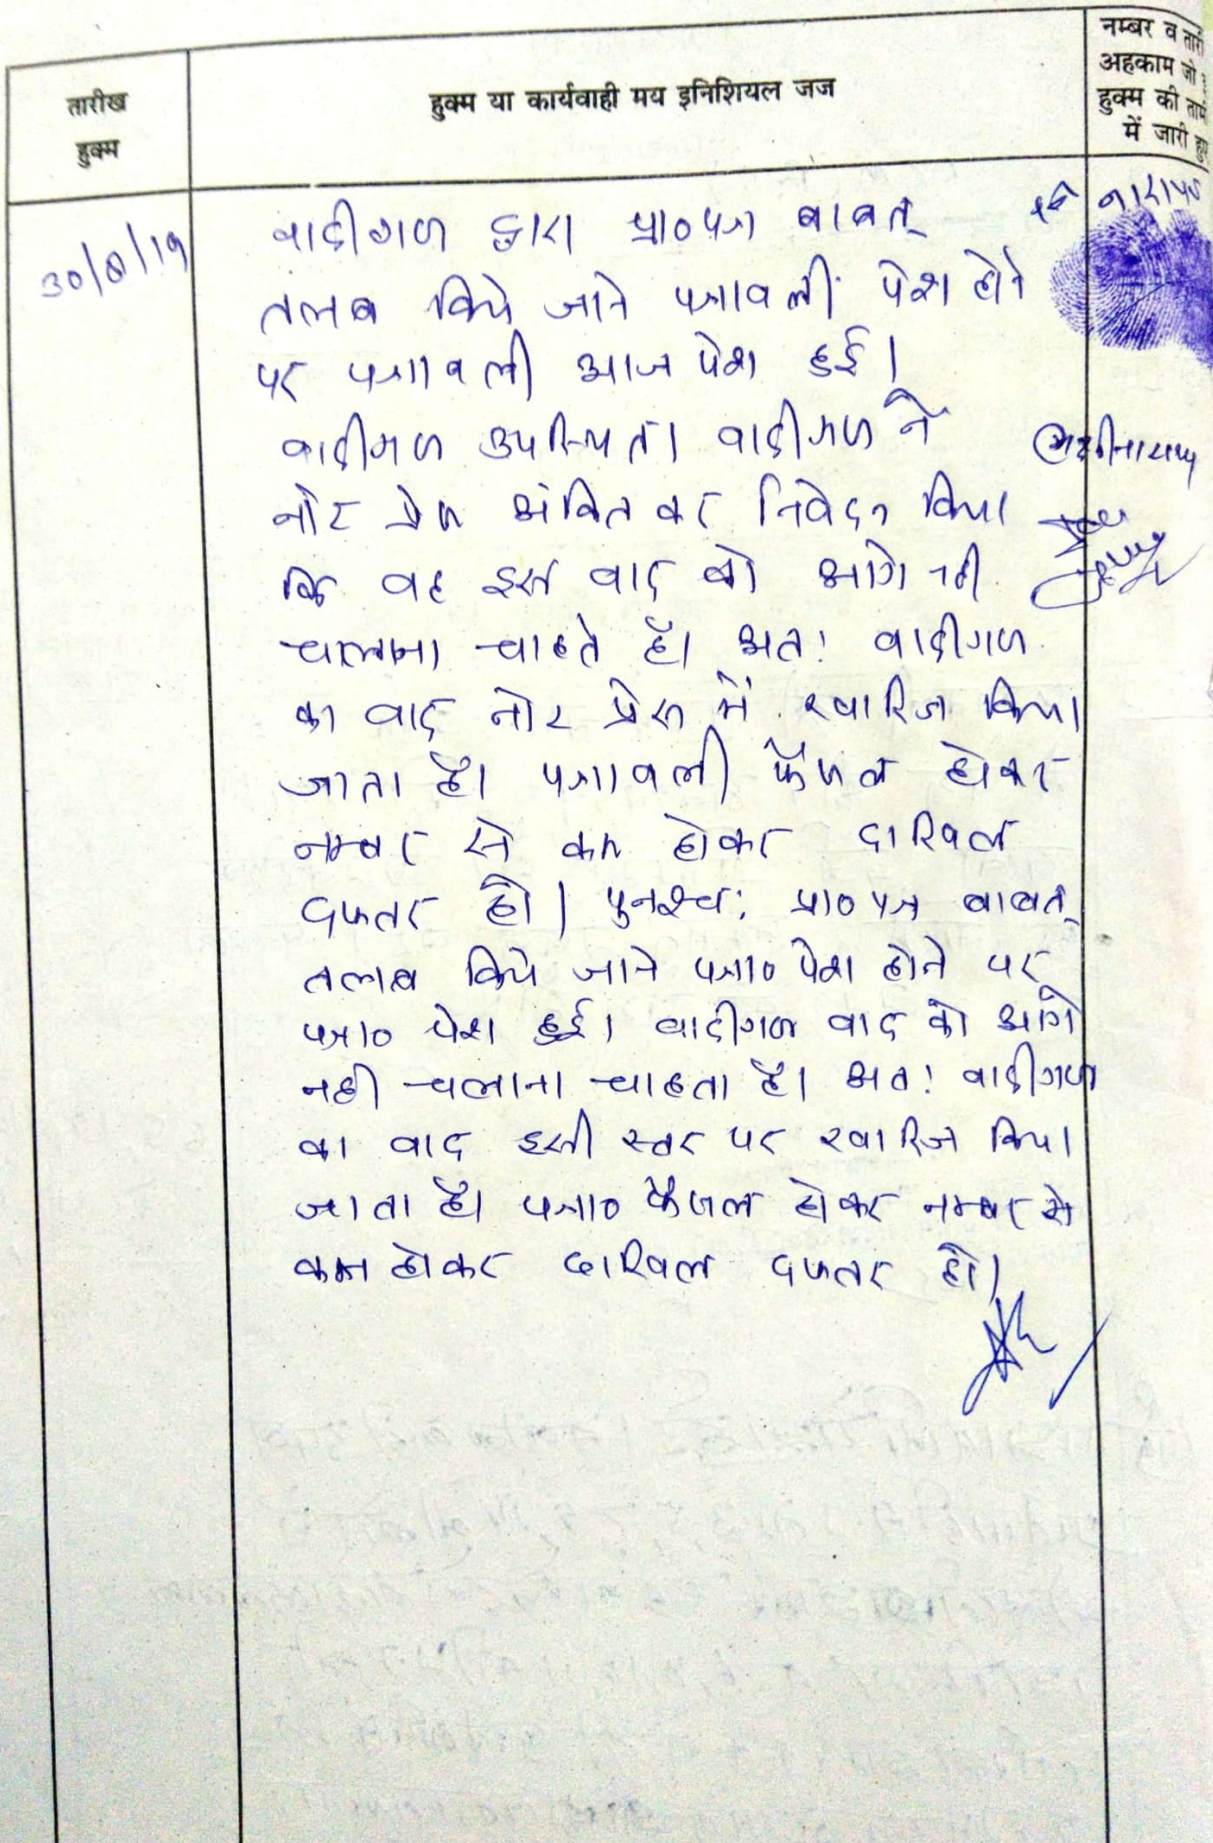 तारीख
हुक्म
हुक्म या कार्यवाही मय इनिशियल जज
नम्बर व
अहकाम जो
हुक्म की
में जारी
30/8/19
वादीगण द्वारा प्रा०पत्र बाबत्
तलब किये जाने पत्रावली पेश होने
पर पत्रावली आज पेश हुई।
वादीगण उपस्थित। वादीगण ने
नोट प्रेस अंकित कर निवेदन किया
कि वह इस वाद को आगे नही
चलाना चाहते है। अतः वादीगण
का वाद नोट प्रेस में खारिज किया
जाता है। पत्रावली फैसल होकर
नम्बर से कम होकर दाखिल
दफ्तर हो। पुनश्चः प्रा० पत्र बाबत्
तलब किये जाने पत्रा० पेश होने पर
पत्रा० पेश हुई। वादीगण वाद को आगे
नही चलाना चाहता है। अतः वादीगण
का वाद इसी स्तर पर खारिज किया
जाता है। पत्रा० फैसल होकर नम्बर से
कम होकर दाखिल दफ्तर हो।